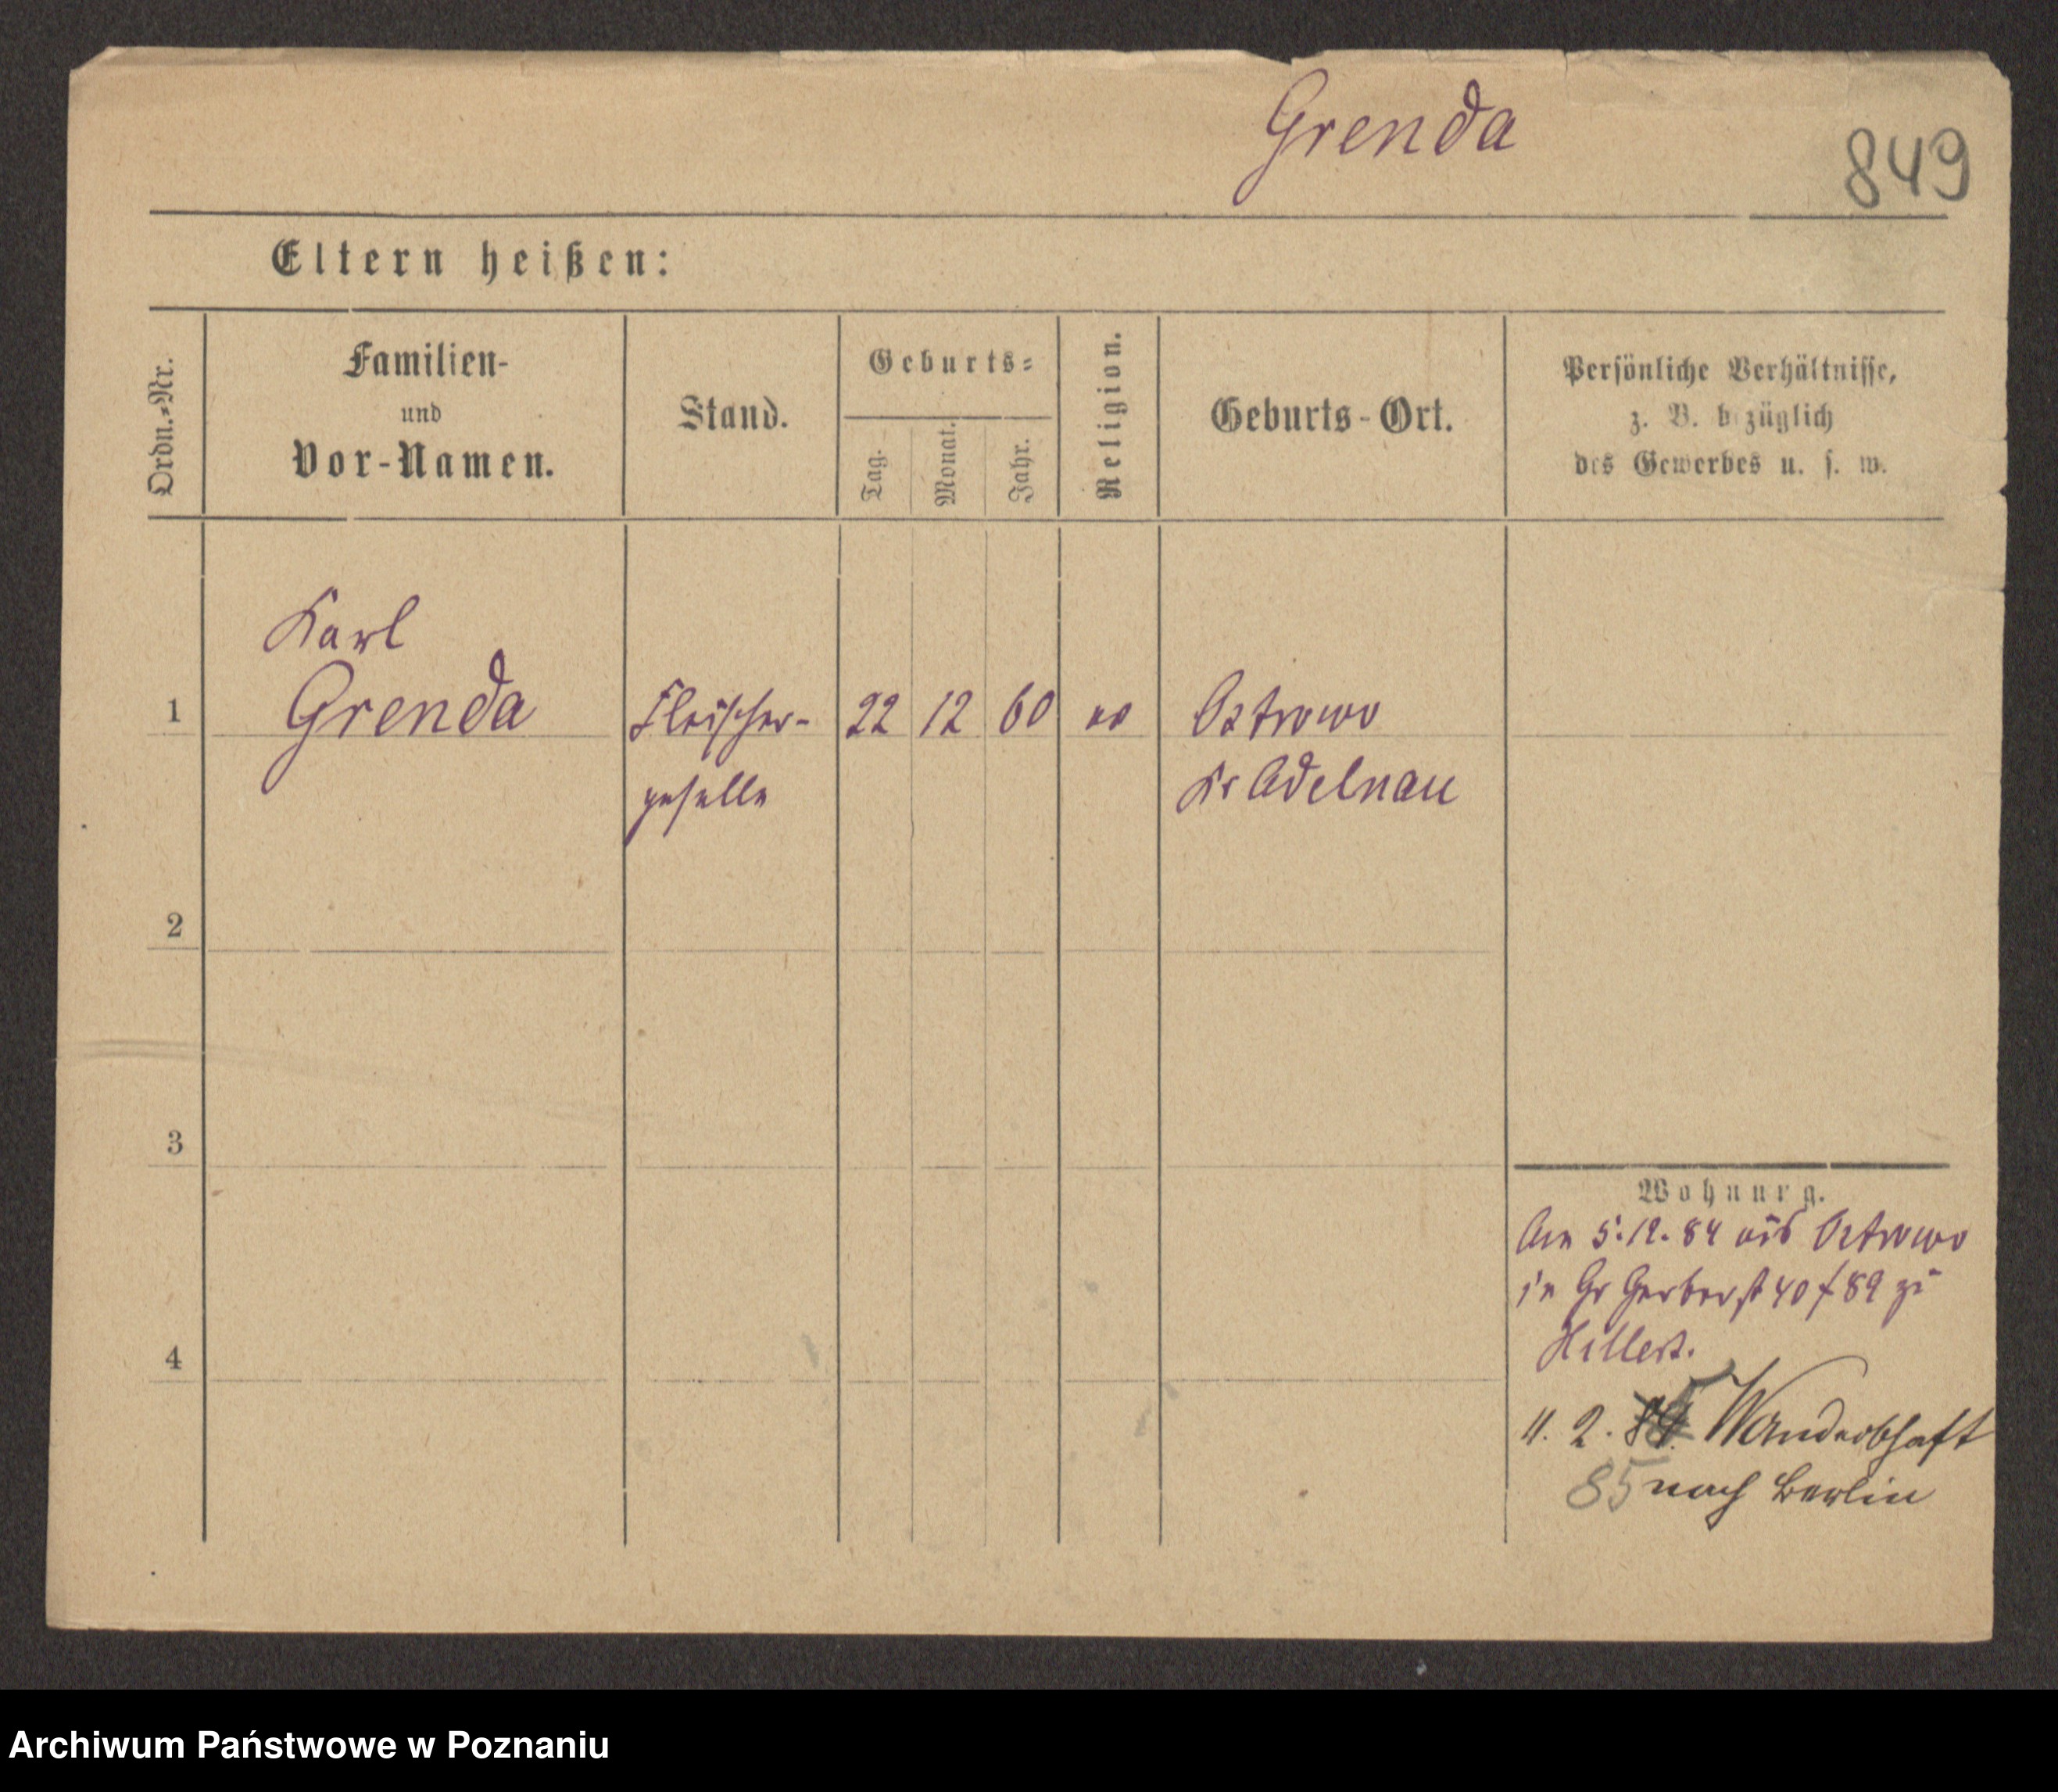 Grenda
849
Eltern heißen:
Ordn.-Nr.
Familien-
und
Vor-Namen.
Stand.
Geburts-
Tag.
Monat.
Jahr.
Religion.
Geburts-Ort.
Persönliche Verhältnisse,
z. B. bezüglich
des Gewerbes u. s. w.
Karl
1 Grenda Fleischer- 22 12 60 Ostrowo
geselle Kr Adelnau
2
3
Wohnung.
Am 5.12.84 aus Ostrowo
in Gr Gerberst 40 f 89 zu
4
11. 2. Wanderschaft
85 nach Berlin
Archiwum Państwowe w Poznaniu